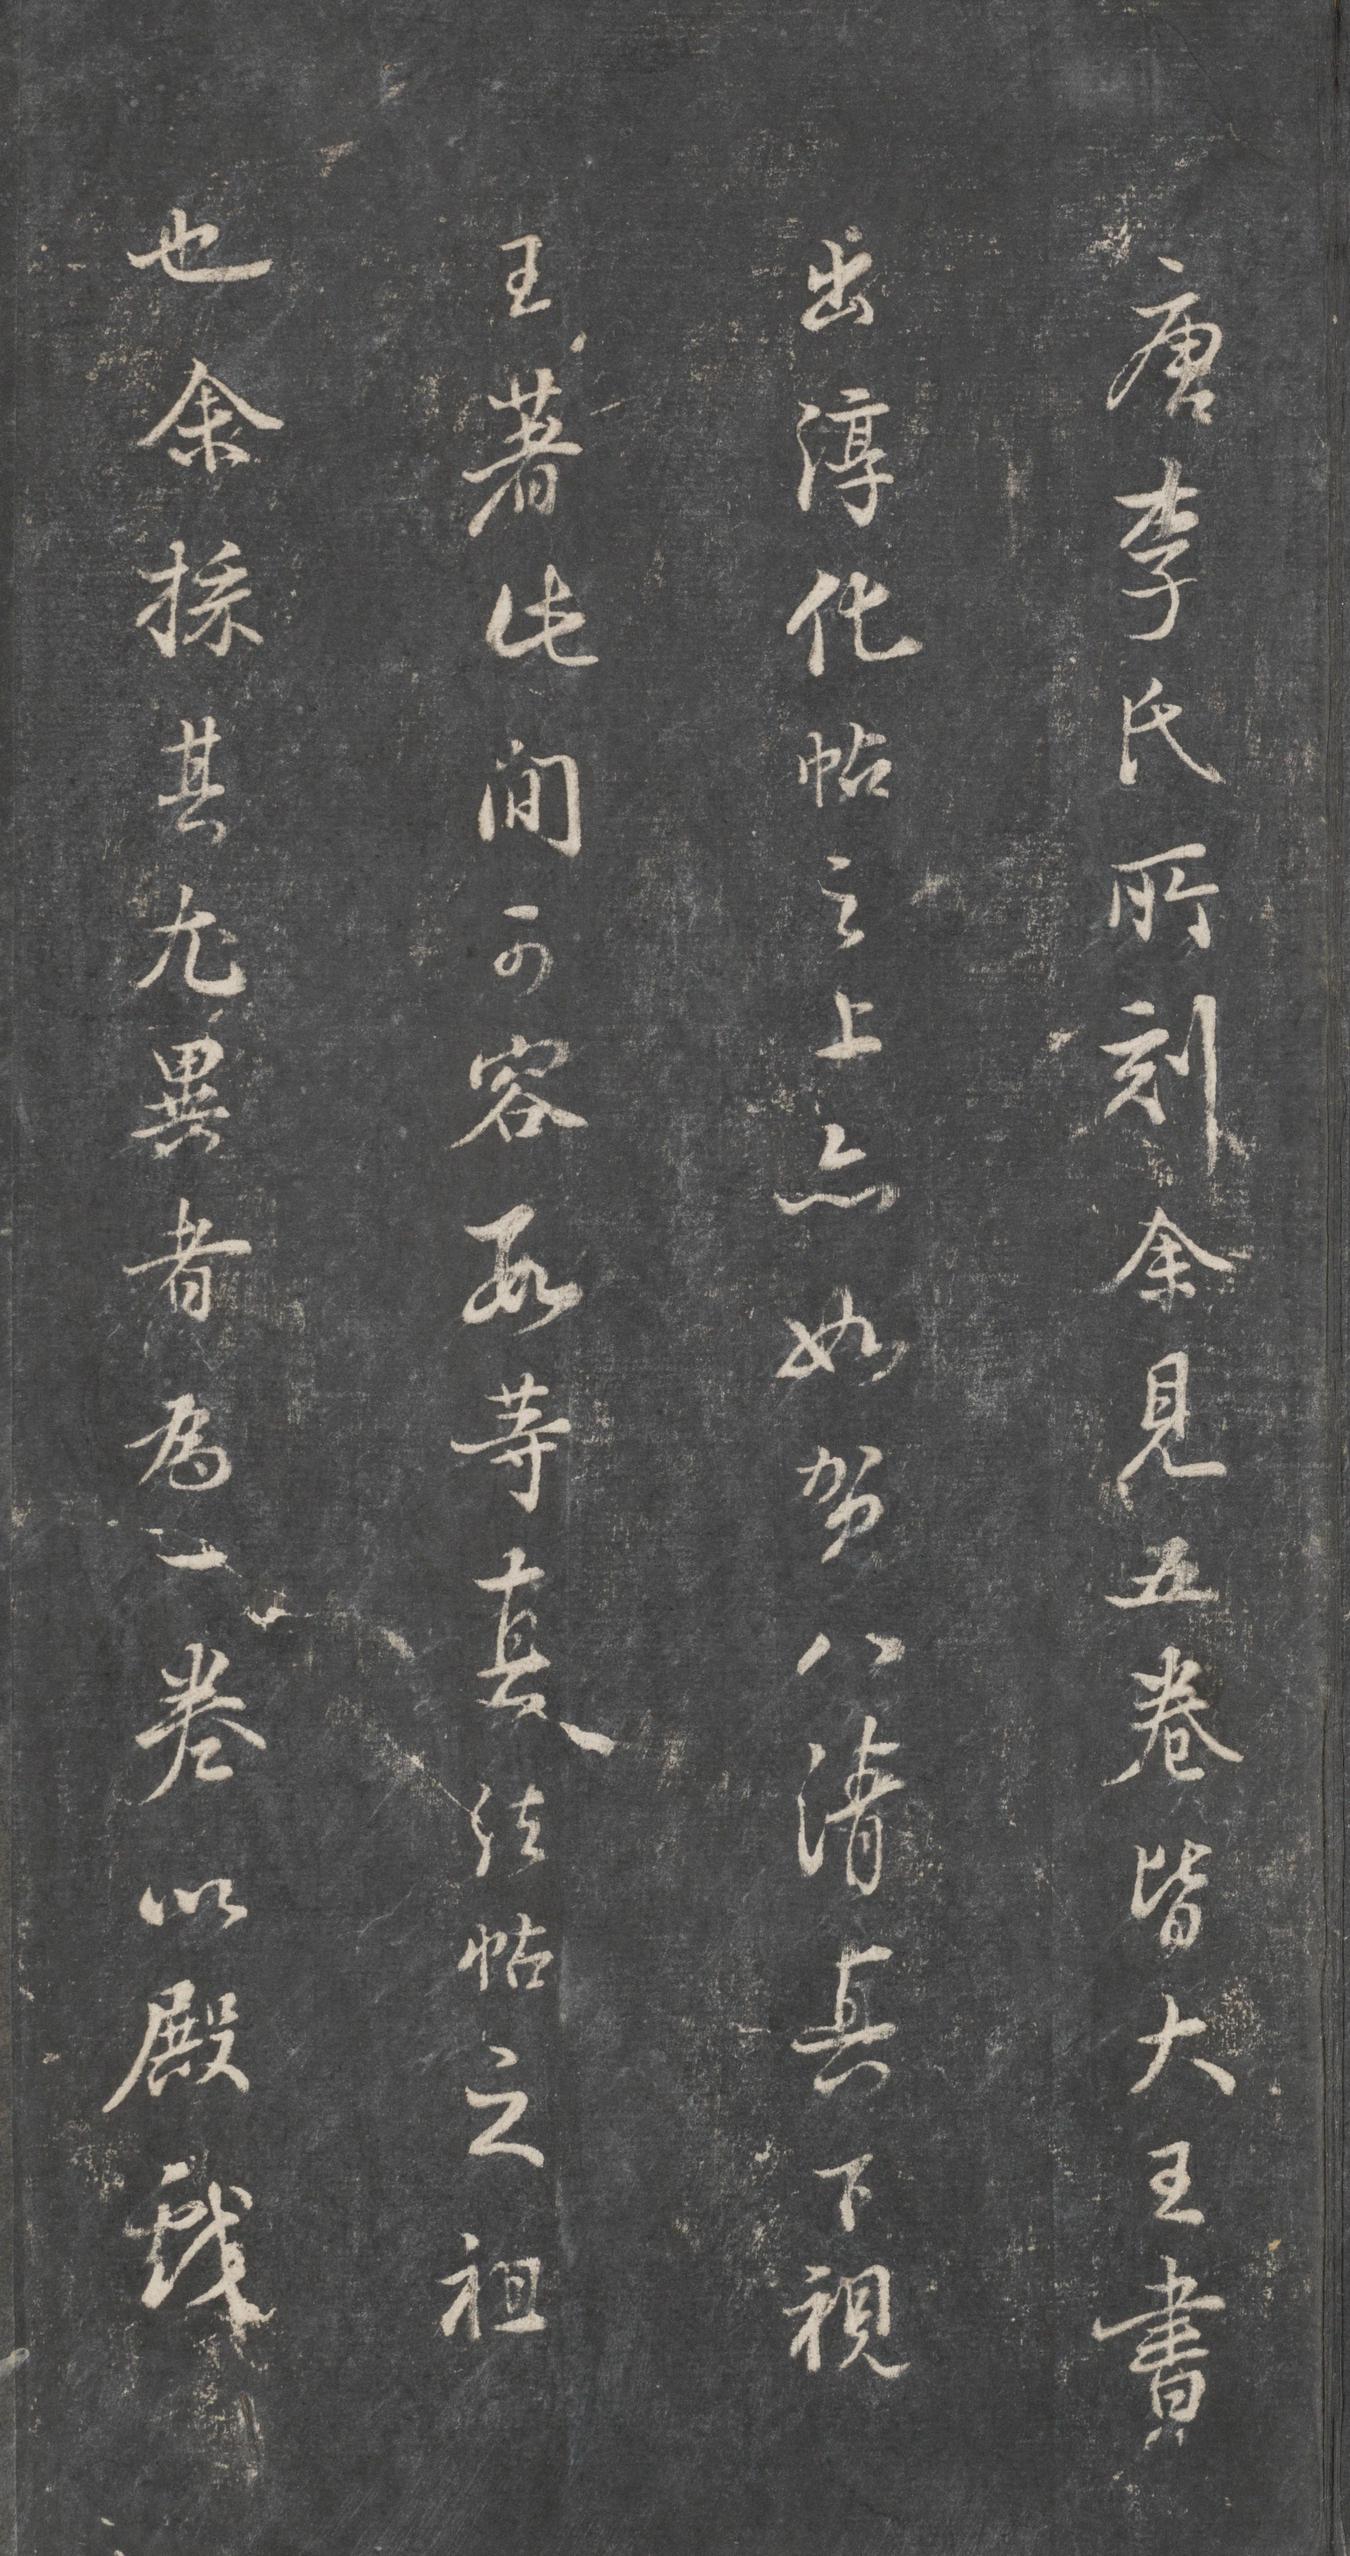 唐李氏所刻余見五卷皆大王書
出淳化帖之上亦如賀八清真下視
王著此間可容數等真法帖之祖
也余採其尤異者為一卷以殿戲